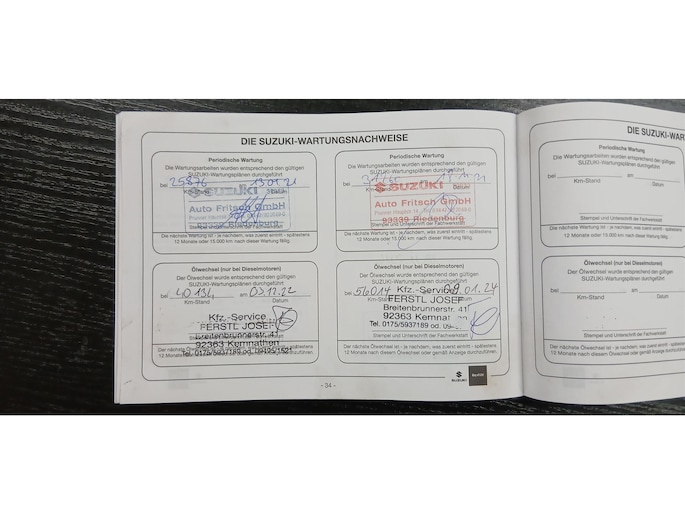 DIE SUZUKI-WARTUNGSNACHWEISE
Periodische Wartung
Die Wartungsarbeiten wurden entsprechend den gültigen
SUZUKI-Wartungsplänen durchgeführt
bei 25876 am 13.01.21
Km-Stand Datum
SUZUKI
Auto Fritsch GmbH
Stempel und Unterschrift der Fachwerkstatt
Die nächste Wartung ist - je nachdem, was zuerst eintritt - spätestens
12 Monate oder 15.000 km nach dieser Wartung fällig.
Periodische Wartung
Die Wartungsarbeiten wurden entsprechend den gültigen
SUZUKI-Wartungsplänen durchgeführt
bei
Km-Stand Datum
SUZUKI
Auto Fritsch GmbH
93339 Riedenburg
Stempel und Unterschrift der Fachwerkstatt
Die nächste Wartung ist - je nachdem, was zuerst eintritt - spätestens
12 Monate oder 15.000 km nach dieser Wartung fällig.
Ölwechsel (nur bei Dieselmotoren)
Der Ölwechsel wurde entsprechend den gültigen
SUZUKI-Wartungsplänen durchgeführt
bei 40134 am 03.12.22
Km-Stand Datum
Kfz.-Service
FERSTL JOSEF
Breitenbrunnerstr. 41
92363 Kemnathen
Tel. 0175/5937189 od. 09495/1521
Der nächste Ölwechsel ist - je nachdem, was zuerst eintritt - spätestens
12 Monate nach diesem Ölwechsel oder gemäß Anzeige durchzuführen.
Ölwechsel (nur bei Dieselmotoren)
Der Ölwechsel wurde entsprechend den gültigen
SUZUKI-Wartungsplänen durchgeführt
bei 56014 09.01.24
Km-Stand Datum
Kfz.-Service
FERSTL JOSEF
Breitenbrunnerstr. 41
92363 Kemnat
Tel. 0175/5937189 od. 09
Stempel und Unterschrift der Fachwerkstatt
Der nächste Ölwechsel ist - je nachdem, was zuerst eintritt - spätestens
12 Monate nach diesem Ölwechsel oder gemäß Anzeige durchzuführen.
- 34 -
SUZUKI
DIE SUZUKI-WAR
Periodische Wartung
Die Wartungsarbeiten wurden entsprechend den g
SUZUKI-Wartungsplänen durchgeführt
bei am
Km-Stand Datum
Stempel und Unterschrift der Fachwerkstatt
Die nächste Wartung ist - je nachdem, was zuerst eintritt - spä
12 Monate oder 15.000 km nach dieser Wartung fällig.
Ölwechsel (nur bei Dieselmotoren)
Der Ölwechsel wurde entsprechend den gültigen
SUZUKI-Wartungsplänen durchgeführt
bei am
Km-Stand Datum
Stempel und Unterschrift der Fachwerkstatt
Der nächste Ölwechsel ist - je nachdem, was zuerst eintritt
12 Monate nach diesem Ölwechsel oder gemäß Anzeige du